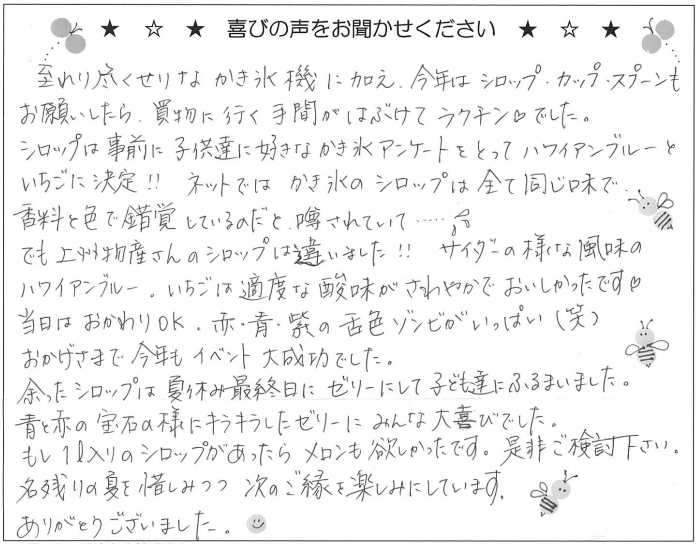 ★ ☆ ★ 喜びの声をお聞かせください ★ ☆ ★
至れり尽くせりな かき氷機に加え、今年は シロップ・カップ・スプーンも
お願いしたら、買物に行く手間がはぶけてラクチン♡でした。
シロップは事前に子供達に好きなかき氷アンケートをとってハワイアンブルーと
いちごに決定!! ネットでは かき氷のシロップは全て同じ味で…
香料と色で錯覚しているのだと、噂されていて……
でも上州物産さんのシロップは違いました!! サイダーの様な風味の
ハワイアンブルー。いちごは適度な酸味がさわやかでおいしかったです♡
当日はおかわりOK。赤・青・紫の舌色ゾンビがいっぱい(笑)
おかげさまで今年もイベント大成功でした。
余ったシロップは夏休み最終日にゼリーにして子ども達にふるまいました。
青と赤の宝石の様にキラキラしたゼリーにみんな大喜びでした。
もし1ℓ入りのシロップがあったらメロンも欲しかったです。是非ご検討下さい。
名残りの夏を惜しみつつ 次のご縁を楽しみにしています。
ありがとうございました。